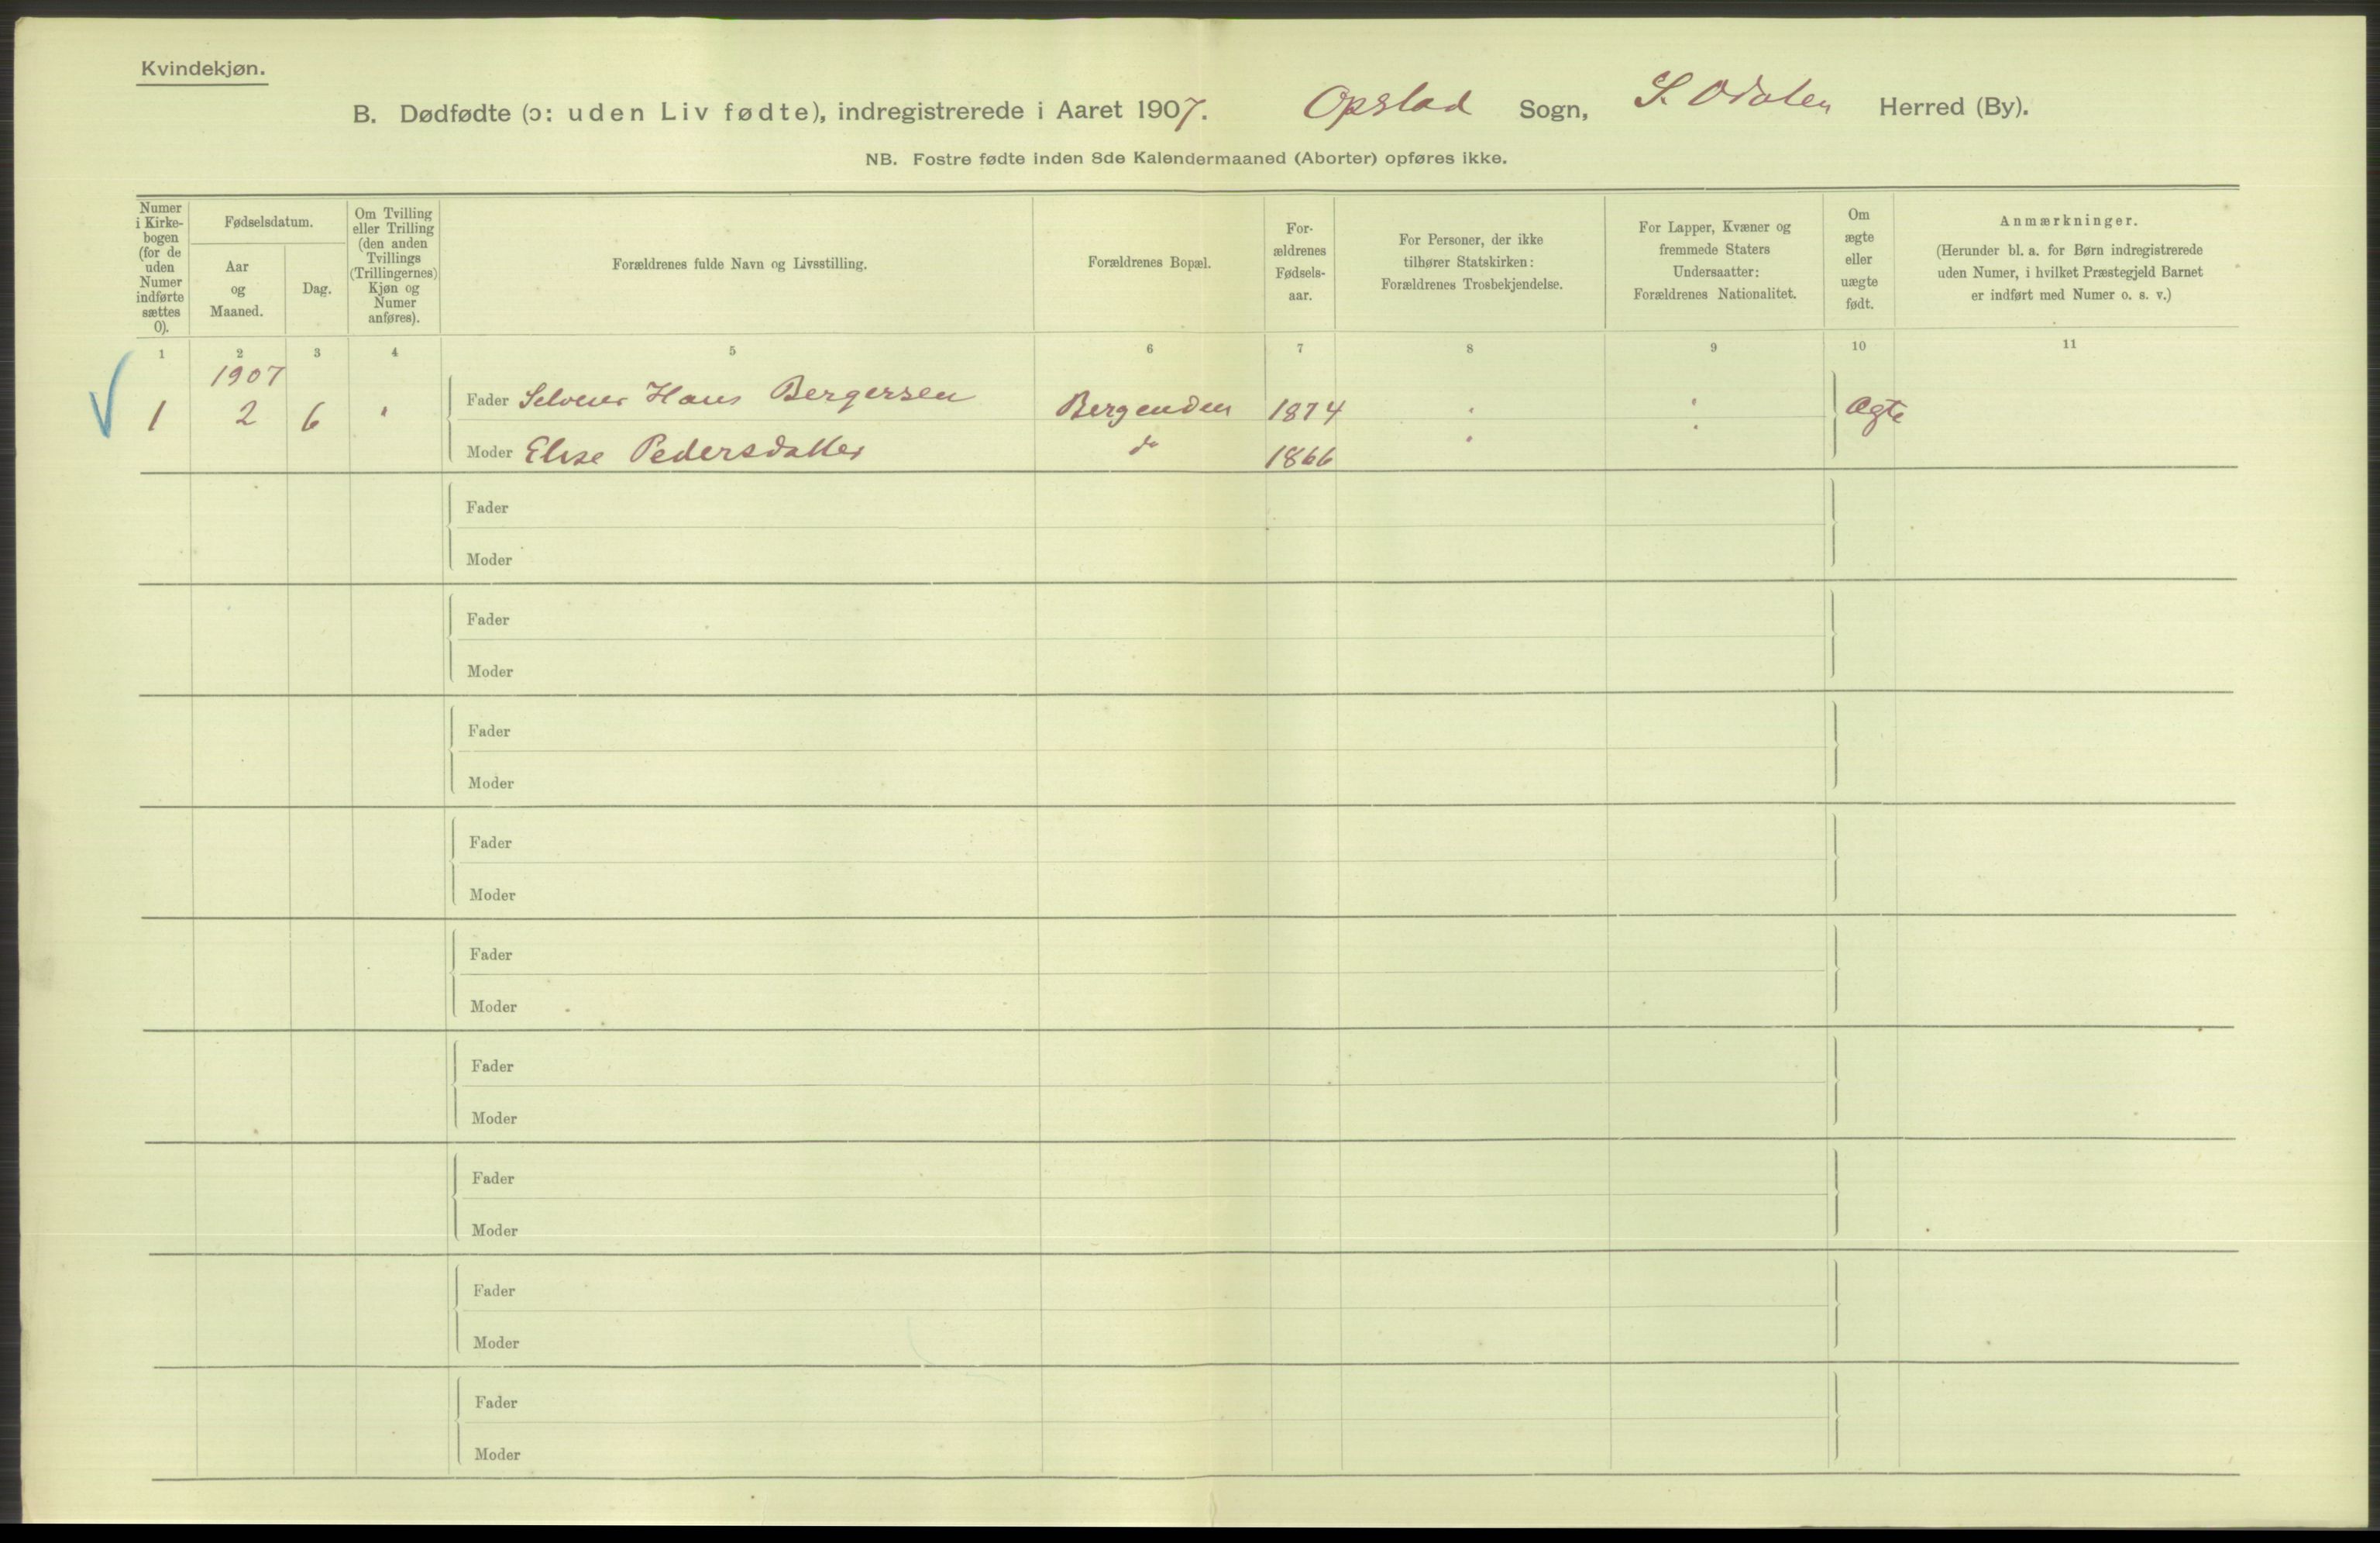 Kvindekjøn.
B. Dødfødte (ɔ: uden Liv fødte), indregistrerede i Aaret 1907. Opstad Sogn, S. Odalen Herred (By).
NB. Fostre fødte inden 8de Kalendermaaned (Aborter) opføres ikke.
Numer i Kirkebogen (for de uden Numer indførte sættes 0).
Fødselsdatum.
Aar og Maaned.
Dag.
Om Tvilling eller Trilling (den anden Tvillings (Trillingernes) Kjøn og Numer anføres).
Forældrenes fulde Navn og Livsstilling.
Forældrenes Bopæl.
Forældrenes Fødselsaar.
For Personer, der ikke tilhører Statskirken: Forældrenes Trosbekjendelse.
For Lapper, Kvæner og fremmede Staters Undersaatter: Forældrenes Nationalitet.
Om ægte eller uægte født.
Anmærkninger.
(Herunder bl. a. for Børn indregistrerede uden Numer, i hvilket Præstegjeld Barnet er indført med Numer o. s. v.)
1 2 3 4 5 6 7 8 9 10 11
1907
1 2 6 " Fader Selveier Hans Bergersen Bergenden 1874 " " Ægte
Moder Elise Pedersdatter do 1866 " "
Fader
Moder
Fader
Moder
Fader
Moder
Fader
Moder
Fader
Moder
Fader
Moder
Fader
Moder
Fader
Moder
Fader
Moder